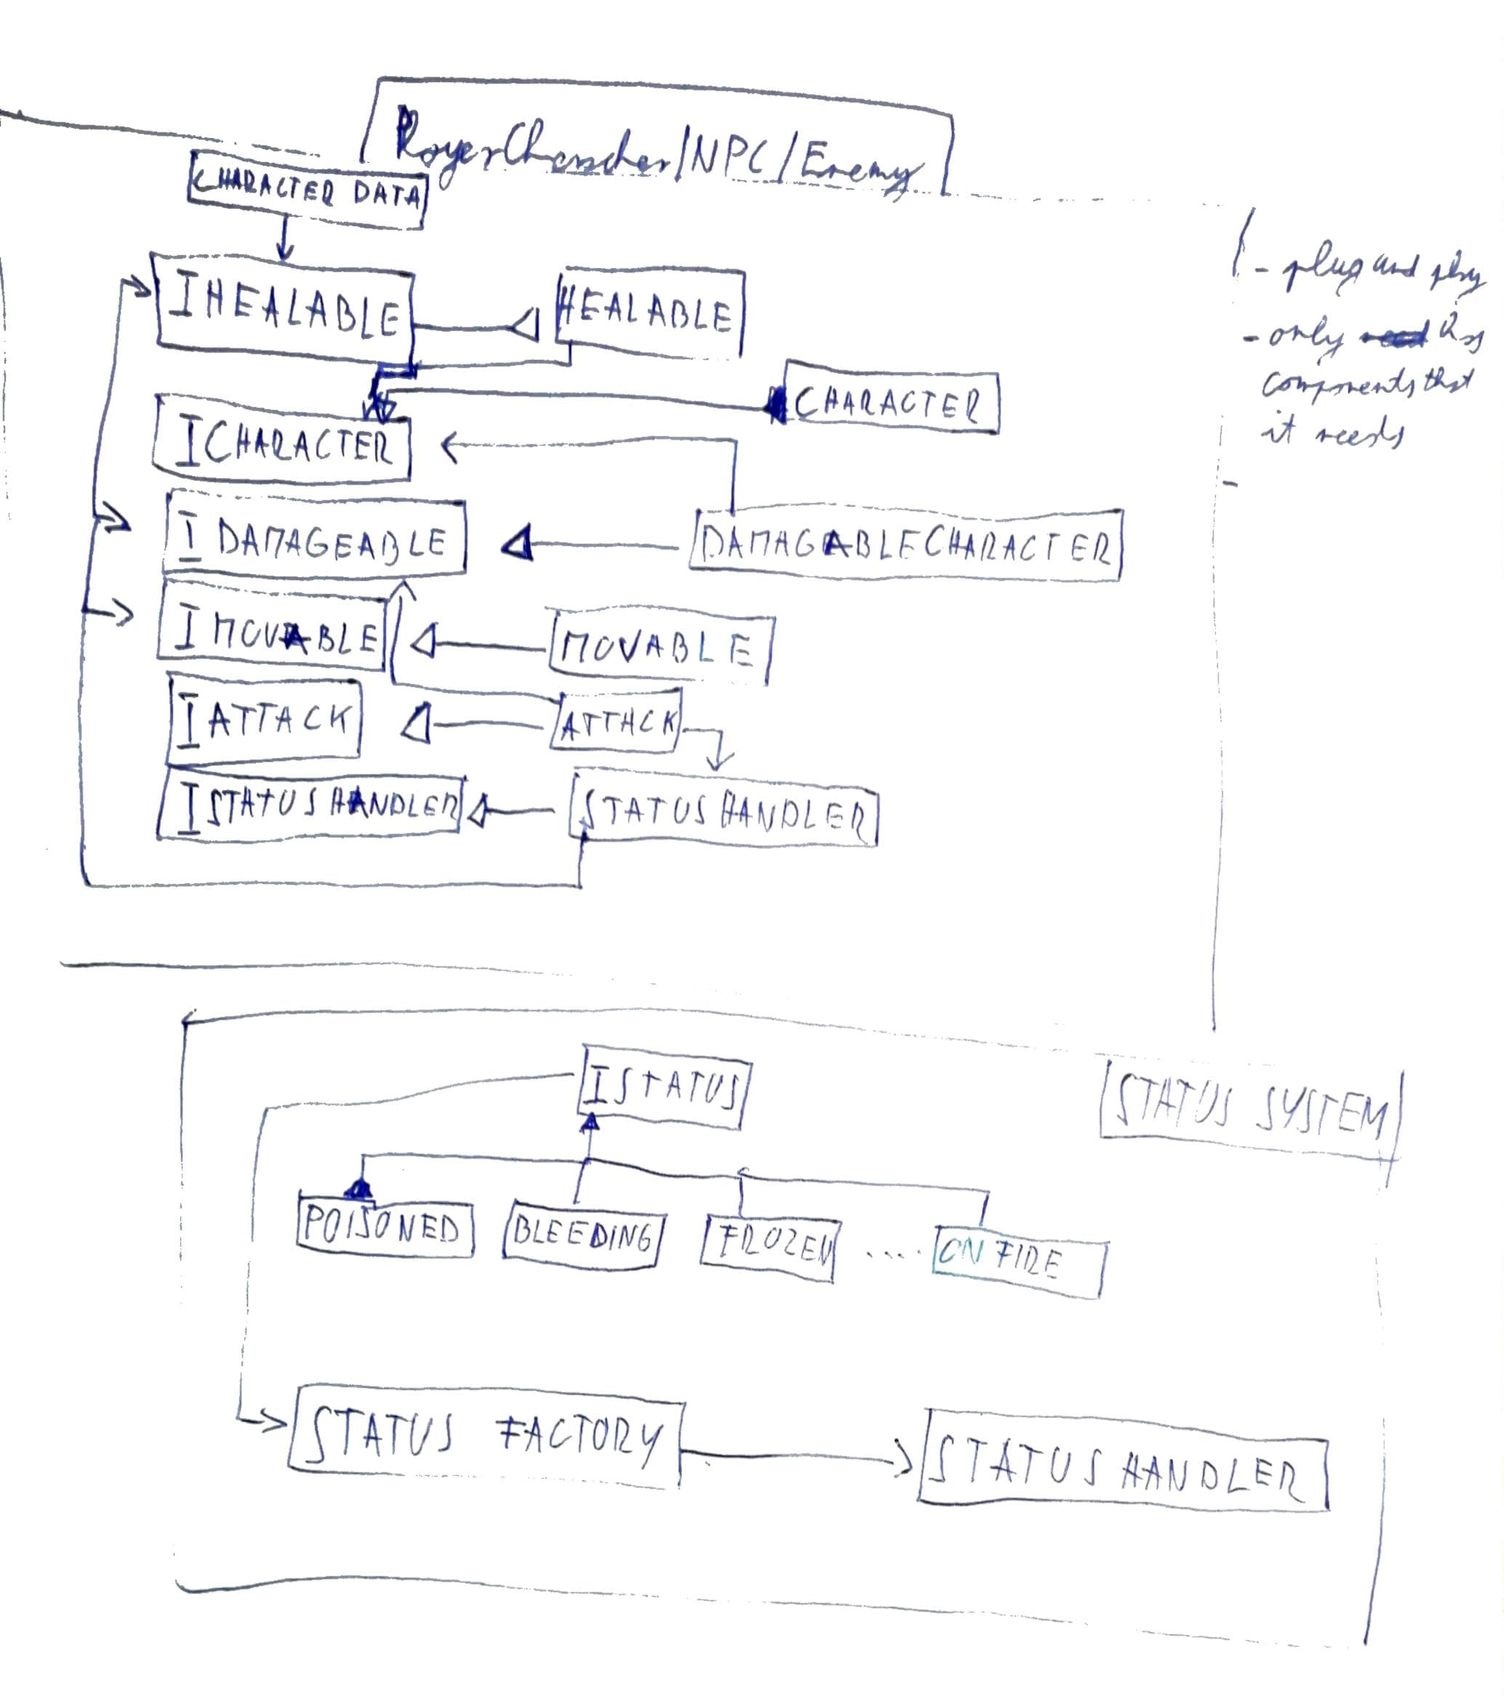 PlayerCharacter/NPC/Enemy
CHARACTER DATA
IHEALABLE
HEALABLE
CHARACTER
ICHARACTER
IDAMAGEABLE
DAMAGABLECHARACTER
IMOVABLE
MOVABLE
IATTACK
ATTACK
ISTATUSHANDLER
STATUSHANDLER
- plug and play
- only
components that
it needs
-
ISTATUS
STATUS SYSTEM
POISONED
BLEEDING
FROZEN
....
ON FIRE
STATUS FACTORY
STATUSHANDLER